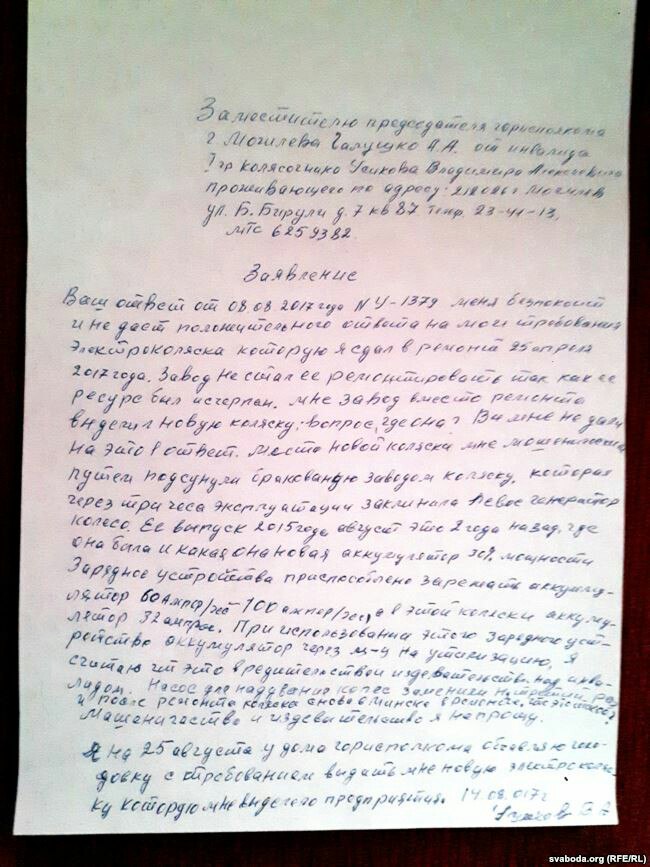 Заместителю председателя горисполкома
г. Могилева Галушко А.А. от инвалида
I гр колясочника Усикова Владимира Алексеевича
проживающего по адресу: 212026 г Могилев
ул. Б. Бирули д. 7 кв 87 телф. 23-41-13,
мтс 6259382.
Заявление
Ваш ответ от 08.08.2017 года N У-1379 меня безпокоит
и не дает положительного ответа на мои требования
Электроколяска которую я сдал в ремонт 25 апреля
2017 года. Завод не стал ее ремонтировать так как ее
ресурс был исчерпан. мне завод вместо ремонта
выделил новую коляску. вопрос, где она? Вы мне не дали
на это в ответ. Место новой коляски мне мошеническим
путем подсунули бракованую заводом коляску, которая
через три часа эксплуатации заклинила левое генератор
колесо. Ее выпуск 2015 года, август это 2 года назад. где
она была и какая она новая аккумулятор 30% мощности
Зарядное устройства приспособлено заряжать аккуму-
лятор 60 ампер/час 100 ампер/час, а в этой коляски аккуму-
лятор 32 ампер. При использовании этого зарядного уст-
ройство аккумулятор через м-ц на утилизацию, я
считаю что это вредительство и издевательство над инва-
лидом. Насос для надувания колес заменили на третий раз
и после ремонта коляска снова в минске в ремонте, что это такое?
Машаничаство и издевательство я не прощу.
Я на 25 августа у дома горисполкома обявляю голо-
довку с требованием выдать мне новую электроколяс-
ку которую мне выделело предприятия. 14.08.017г
Усиков В А
svaboda.org (RFE/RL)